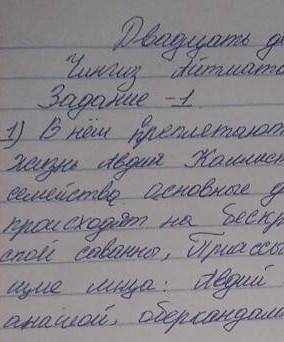 Двадцать де
Чингиз Айтмато
Задание -1
1) В нём преплетают
жизнь Авдия Каллист
семейства основные д
происходят на бескр
ской саванны, Приассы
щие лица: Авдий
анашой, оберкандал